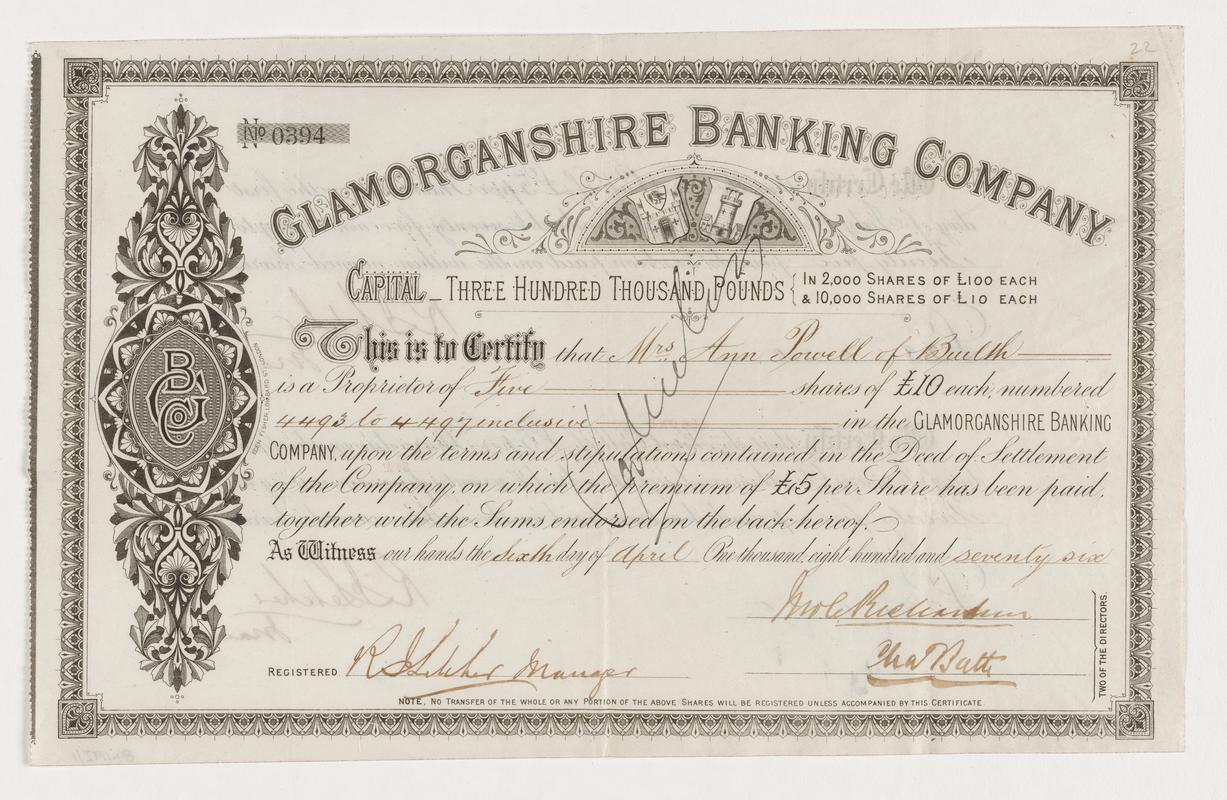 22
No 0394
GLAMORGANSHIRE BANKING COMPANY
CAPITAL _ THREE HUNDRED THOUSAND POUNDS { IN 2,000 SHARES OF £100 EACH
& 10,000 SHARES OF £10 EACH
This is to Certify that Mrs. Ann Powell of Builth
is a Proprietor of Five shares of £10 each, numbered
4493 to 4497 inclusive in the GLAMORGANSHIRE BANKING
COMPANY, upon the terms and stipulations contained in the Deed of Settlement
of the Company, on which the premium of £5 per Share has been paid,
together with the Sums endorsed on the back hereof.
As Witness our hands the Sixth day of April One thousand, eight hundred and seventy six
Richardson
Chas Batt
TWO OF THE DIRECTORS.
REGISTERED Manager
NOTE, NO TRANSFER OF THE WHOLE OR ANY PORTION OF THE ABOVE SHARES WILL BE REGISTERED UNLESS ACCOMPANIED BY THIS CERTIFICATE.
GBCo
Cancelled